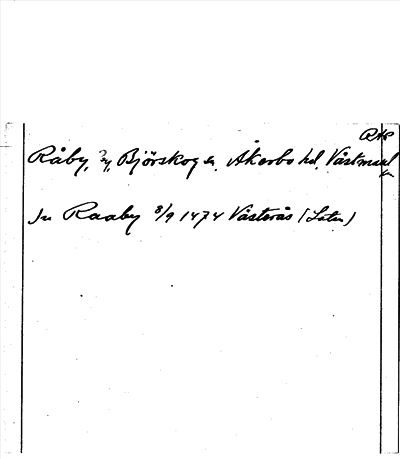 RAP
Råby, By, Björskog sn. Åkerbo hd. Västmanl
ln
In Raaby 8/9 1474 Västerås (Latin)